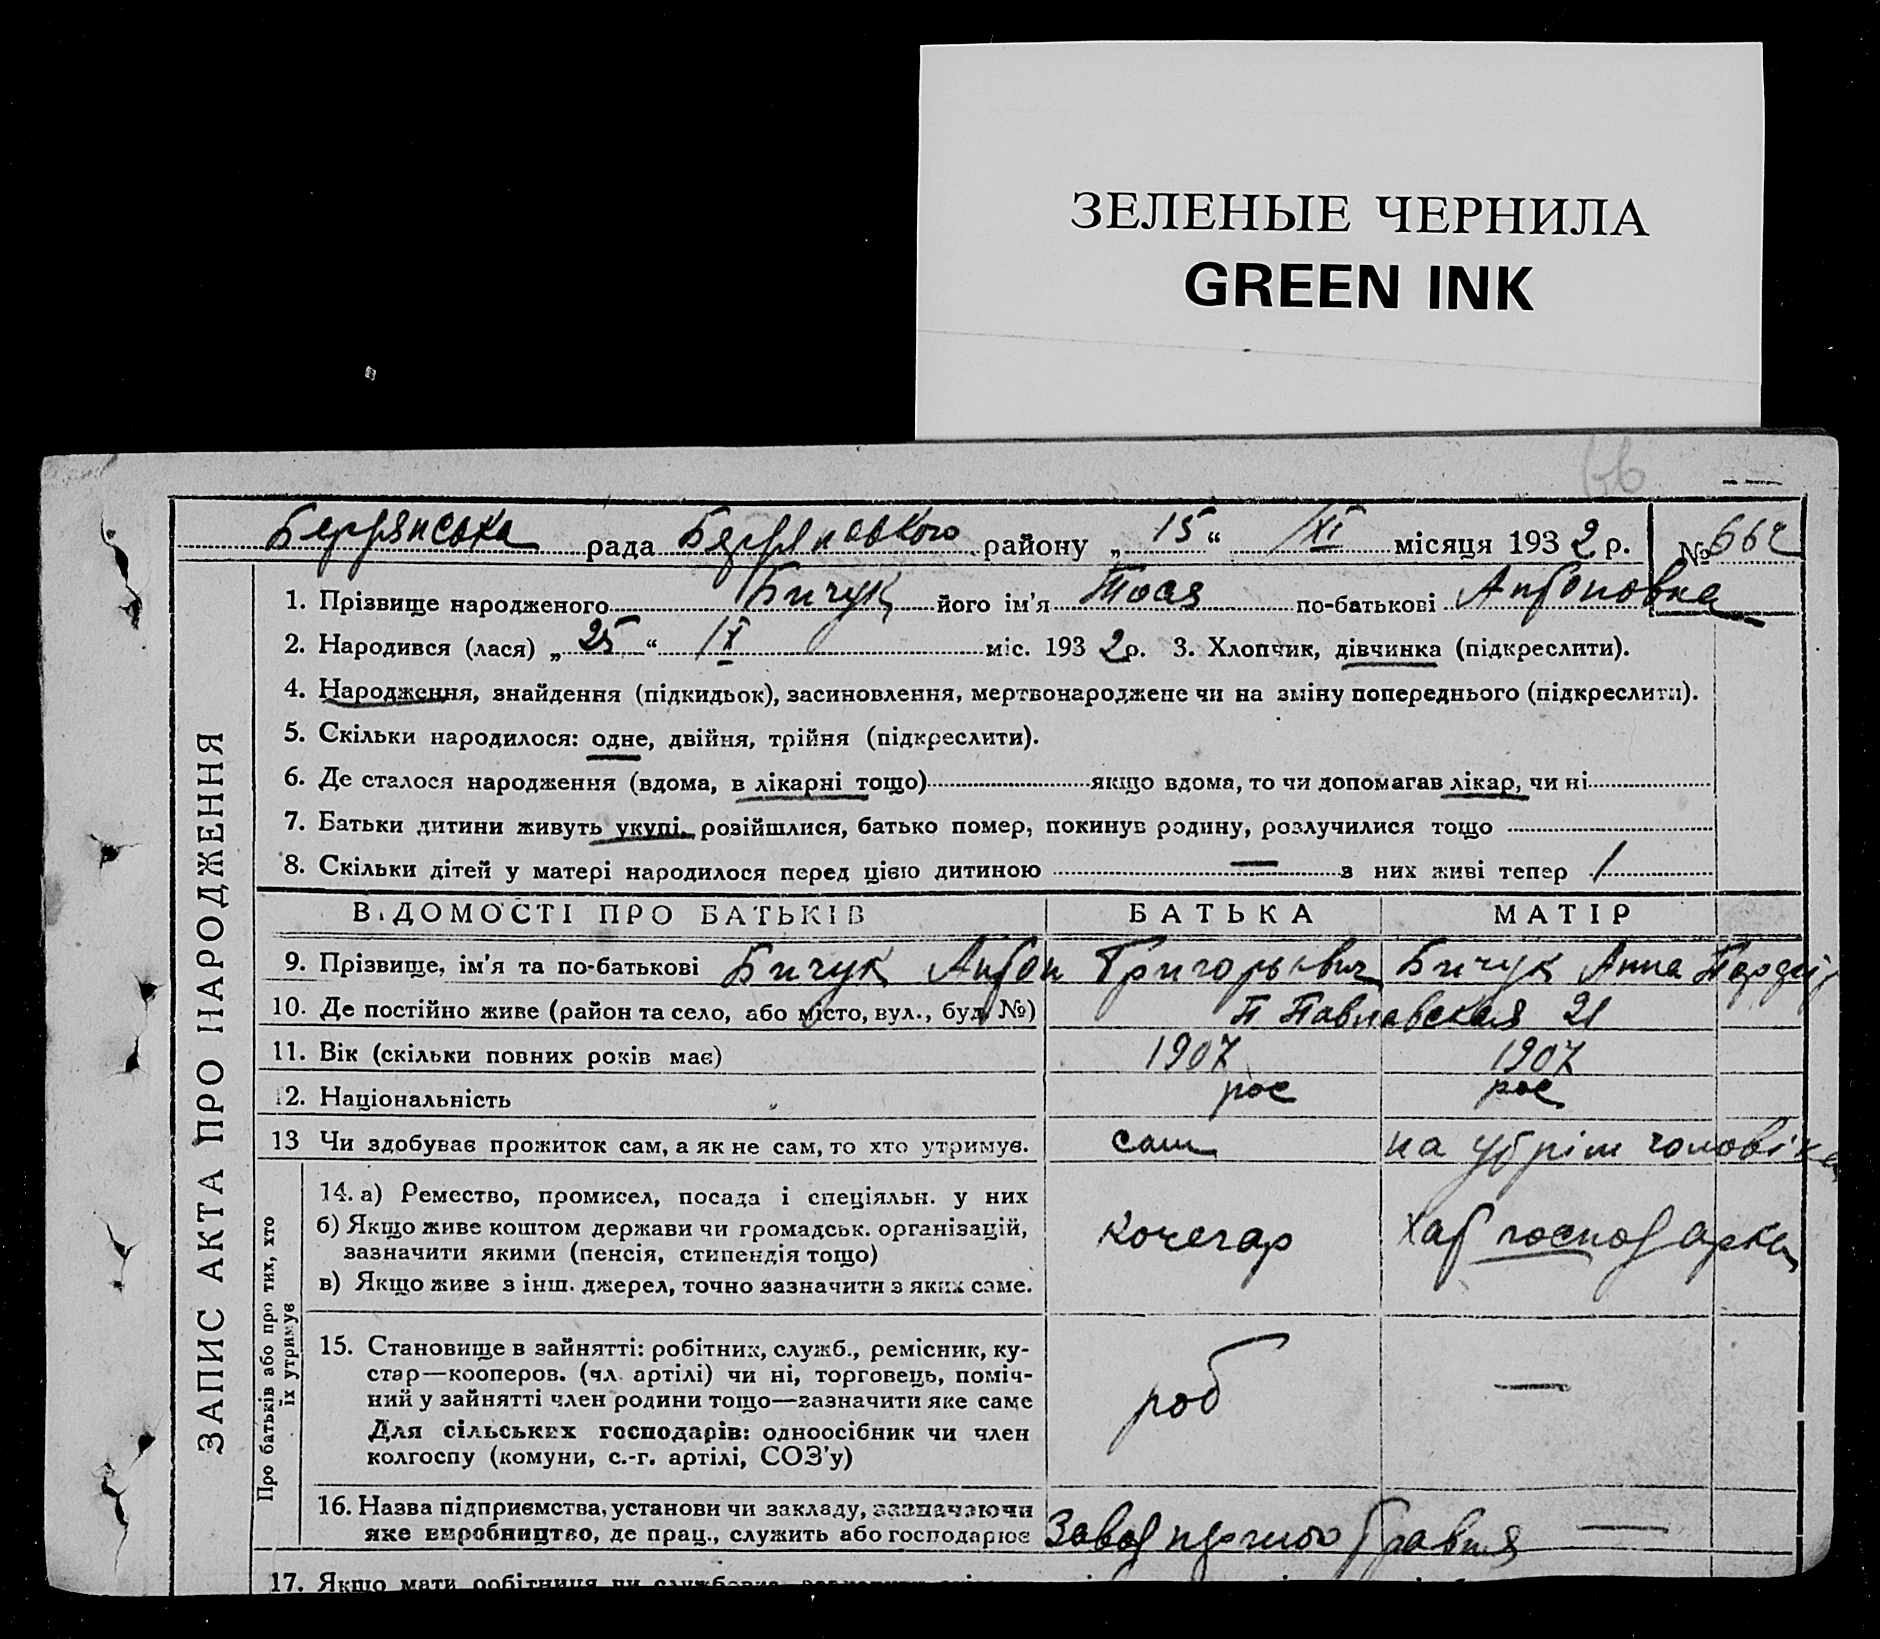 ЗЕЛЕНЫЕ ЧЕРНИЛА
GREEN INK
66
Бердянська рада Бердянського району „15“ IX місяця 1932 р. №
1. Прізвище народженого Бичук його ім'я Тося по-батькові Антоновна
2. Народився (лася) „25“ IX міс. 1932 р. 3. Хлопчик, дівчинка (підкреслити).
4. Народження, знайдення (підкидьок), засиновлення, мертвонароджене чи на зміну попереднього (підкреслити).
5. Скільки народилося: одне, двійня, трійня (підкреслити).
6. Де сталося народження (вдома, в лікарні тощо) якщо вдома, то чи допомагав лікар, чи ні
7. Батьки дитини живуть укупі, розійшлися, батько помер, покинув родину, розлучилися тощо
8. Скільки дітей у матері народилося перед цією дитиною — з них живі тепер /
ВІДОМОСТІ ПРО БАТЬКІВ БАТЬКА МАТІР
9. Прізвище, ім'я та по-батькові Бичук Антон Григорьевич Бичук Анна
10. Де постійно живе (район та село, або місто, вул., буд. №) 21
11. Вік (скільки повних років має) 1907 1907
12. Національність рос рос
13 Чи здобуває прожиток сам, а як не сам, то хто утримує. сам на утрім чоловіка
14. а) Ремество, промисел, посада і спеціяльн. у них
б) Якщо живе коштом держави чи громадськ. організацій,
зазначити якими (пенсія, стипендія тощо)
в) Якщо живе з інш. джерел, точно зазначити з яких саме.
кочегар хат господарка
15. Становище в зайнятті: робітник, служб., ремісник, ку-
стар—кооперов. (чл. артілі) чи ні, торговець, поміч-
ний у зайнятті член родини тощо—зазначити яке саме
Для сільських господарів: одноосібник чи член
колгоспу (комуни, с.-г. артілі, СОЗ'у)
роб —
16. Назва підприємства, установи чи закладу, зазначаючи
яке виробництво, де прац., служить або господарює Завод —
17. Якщо мати робітниця чи
ЗАПИС АКТА ПРО НАРОДЖЕННЯ
Про батьків або про тих, хто
їх утримує